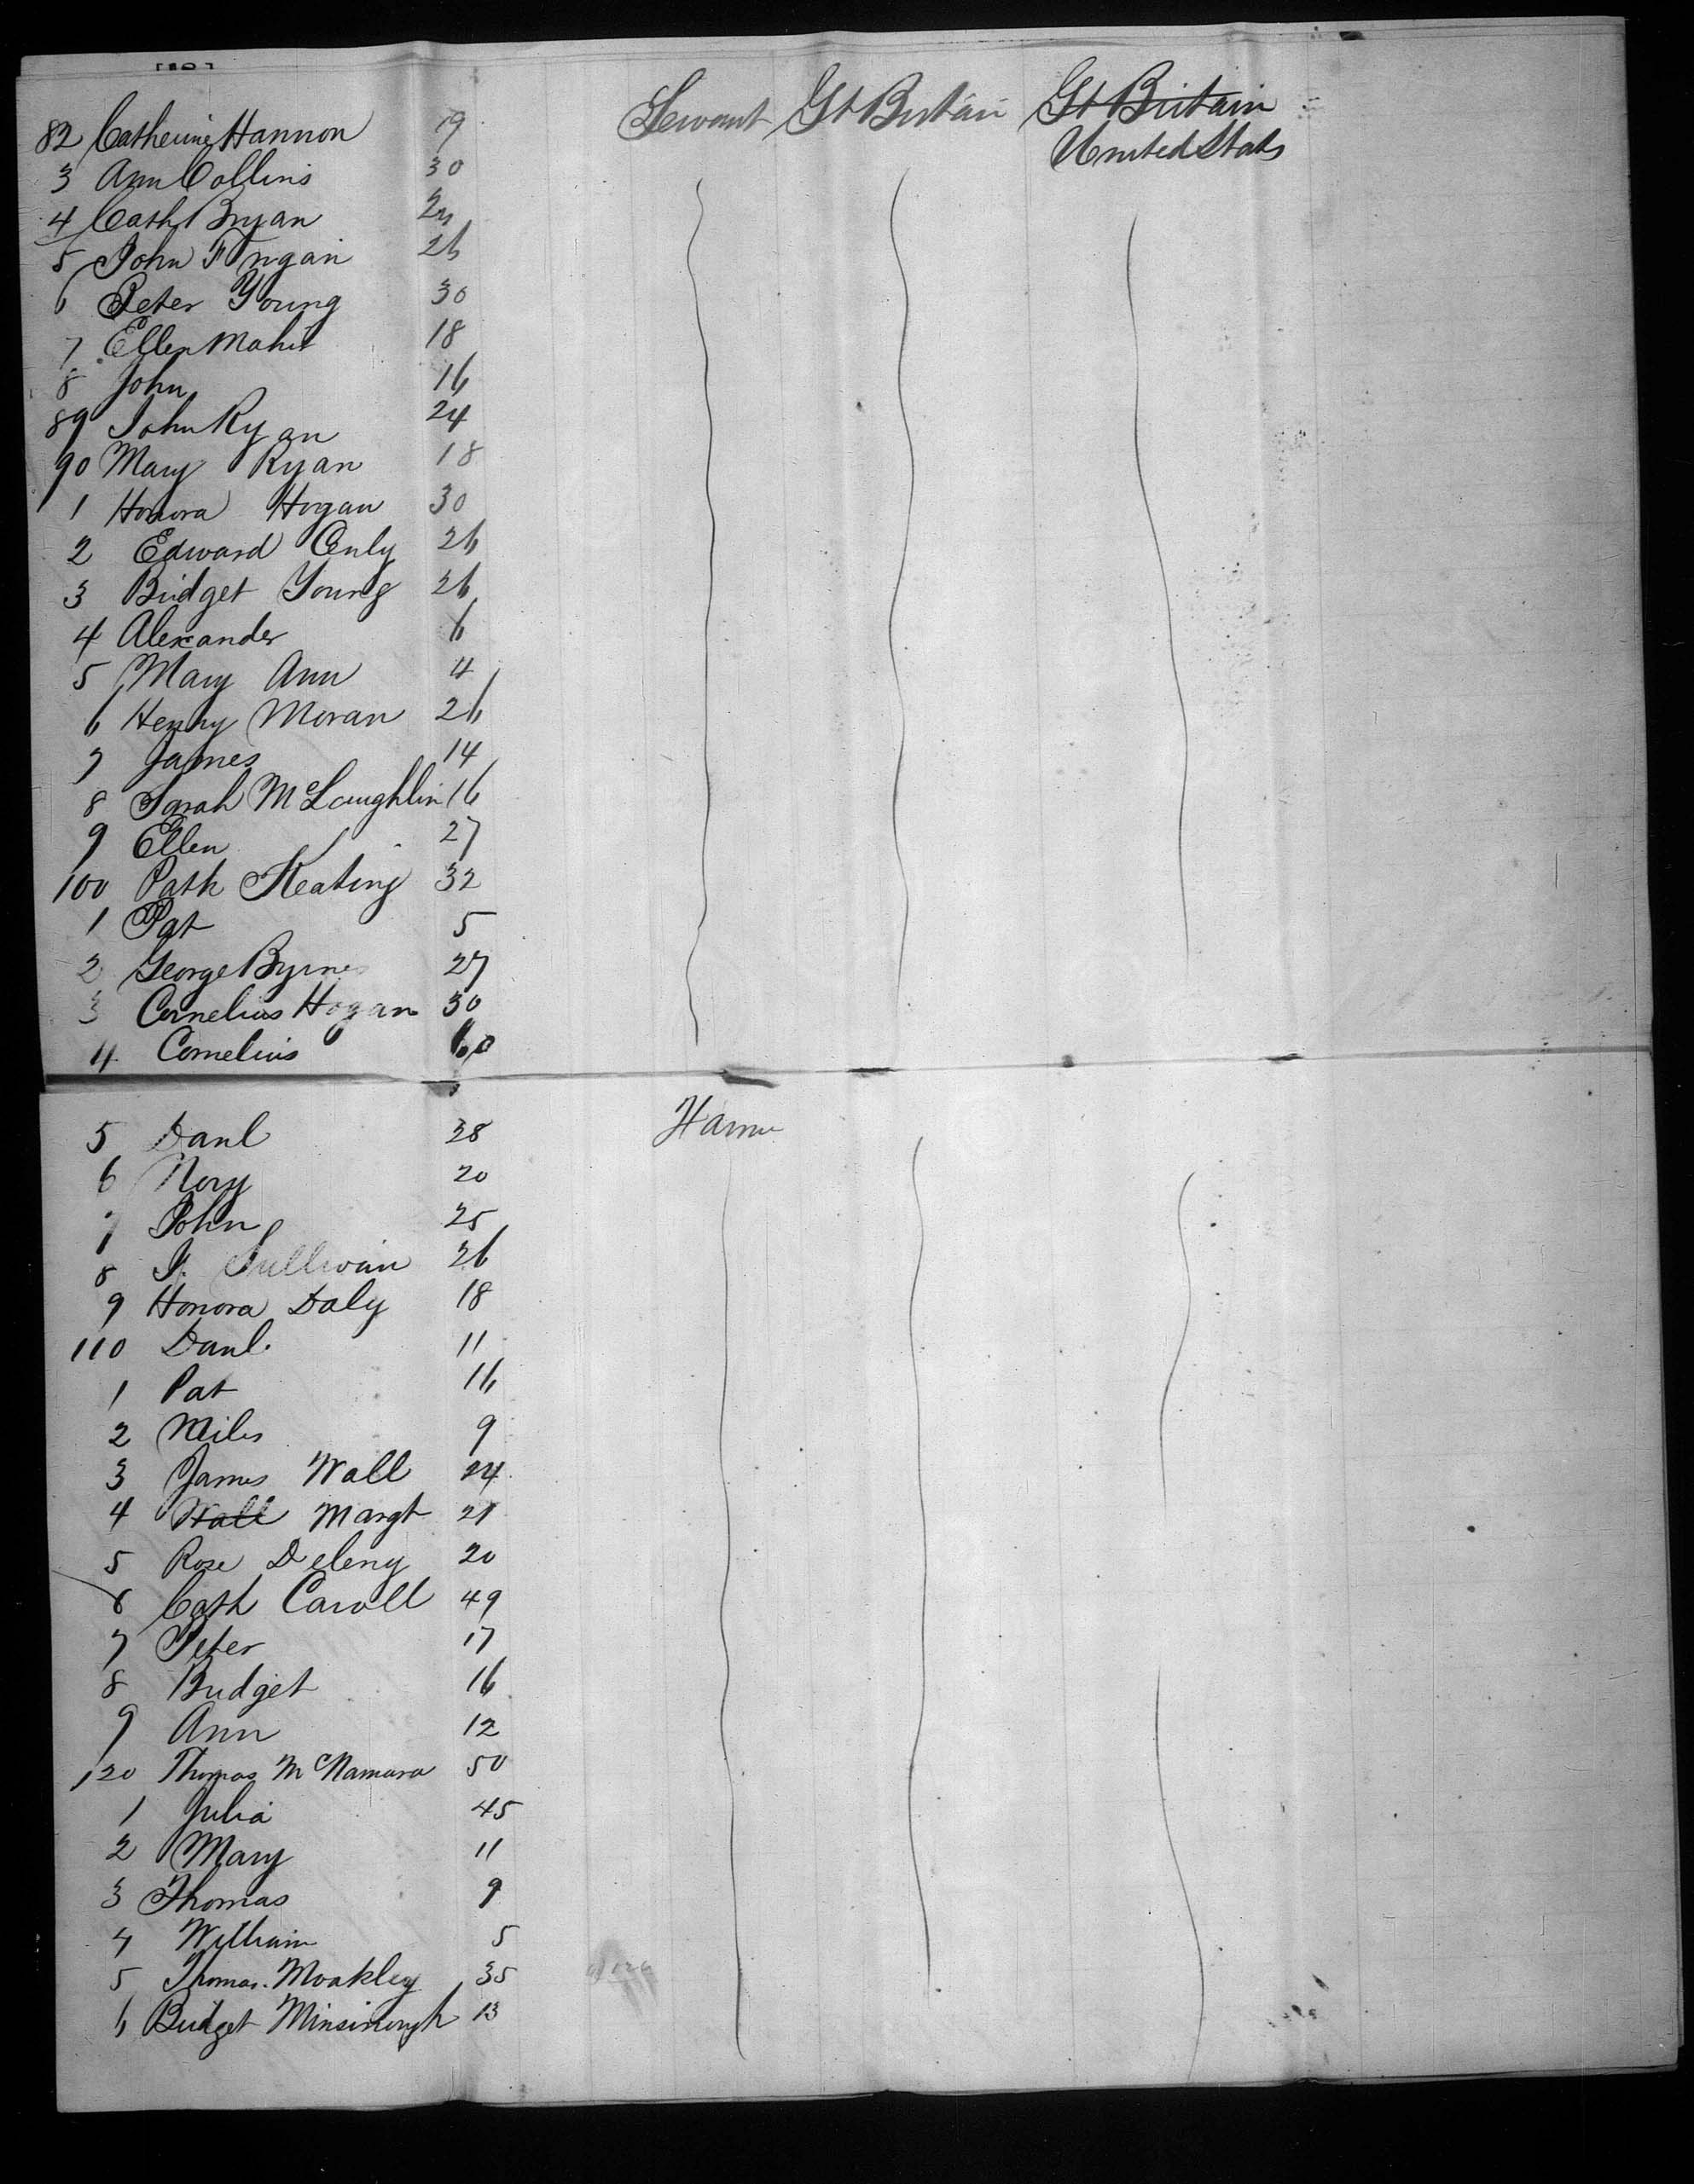 82 Catherine Hannon 19 Servant Gt Britain Gt Britain
United States
3 Ann Collins 30
4 Cath Bryan
5 John 26
6 Peter Young 30
7 Ellen Maher 18
8 John 16
89 John Ryan 24
90 Mary Ryan 18
1 Honora Hogan 30
2 Edward 26
3 Bridget Young 26
4 Alexander 6
5 Mary Ann 4
6 Henry Moran 26
7 James 14
8 Sarah McLaughlin 16
9 Ellen 27
100 Patk Keating 32
1 Pat 5
2 George Byrnes 27
3 Cornelius Hogan 30
4 Cornelius 60
5 Danl 38
6 Nory 20
7 John 25
8 J. Sullivan 26
9 Honora Daly 18
110 Danl. 11
1 Pat 16
2 Miles 9
3 James Wall 24
4 Wall Margt 21
5 Rose Deleny 20
6 Cath Caroll 49
7 Peter 17
8 Bridget 16
9 Ann 12
120 Thomas McNamara 50
1 Julia 45
2 Mary 11
3 Thomas 9
4 William 5
5 Thomas. Moakley 35
6 Bridget 13